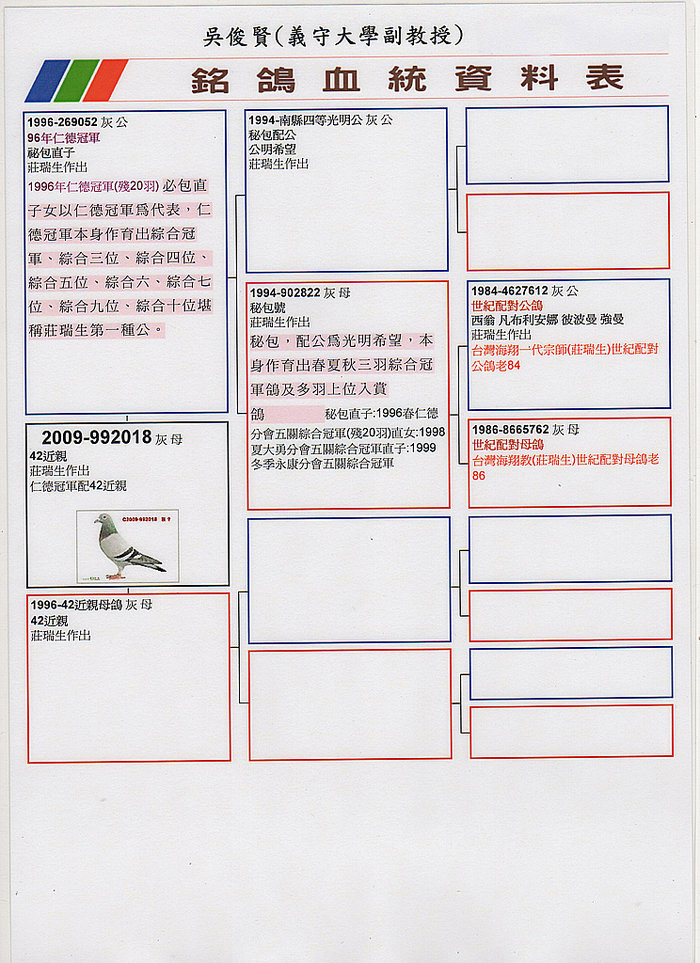 吳俊賢(義守大學副教授)
銘鴿血統資料表
1996-269052 灰 公
96年仁德冠軍
祕包直子
莊瑞生作出
1996年仁德冠軍(殘20羽) 必包直
子女以仁德冠軍爲代表，仁
德冠軍本身作育出綜合冠
軍、綜合三位、綜合四位、
綜合五位、綜合六、綜合七
位、綜合九位、綜合十位堪
稱莊瑞生第一種公。
2009-992018 灰 母
42近親
莊瑞生作出
仁德冠軍配42近親
C2009-992018
1996-42近親母鴿 灰 母
42近親
莊瑞生作出
1994-南縣四等光明公 灰 公
秘包配公
公明希望
莊瑞生作出
1994-902822 灰 母
秘包號
莊瑞生作出
秘包，配公爲光明希望，本
身作育出春夏秋三羽綜合冠
軍鴿及多羽上位入賞
鴿 秘包直子:1996春仁德
分會五關綜合冠軍(殘20羽)直女:1998
夏大勇分會五關綜合冠軍直子:1999
冬季永康分會五關綜合冠軍
1984-4627612 灰 公
世紀配對公鴿
西翁 凡布利安娜 彼波曼 強曼
莊瑞生作出
台灣海翔一代宗師(莊瑞生)世紀配對
公鴿老84
1986-8665762 灰 母
世紀配對母鴿
台灣海翔教(莊瑞生)世紀配對母鴿老
86